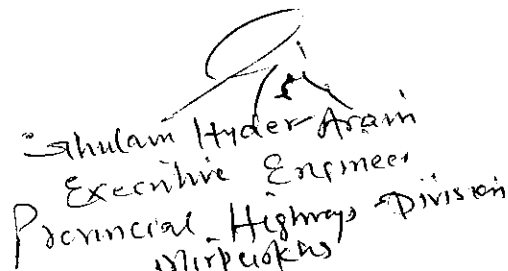 Ghulam Hyder Arain
Executive Engineer
Provincial Highways Division
Mirpurkhas